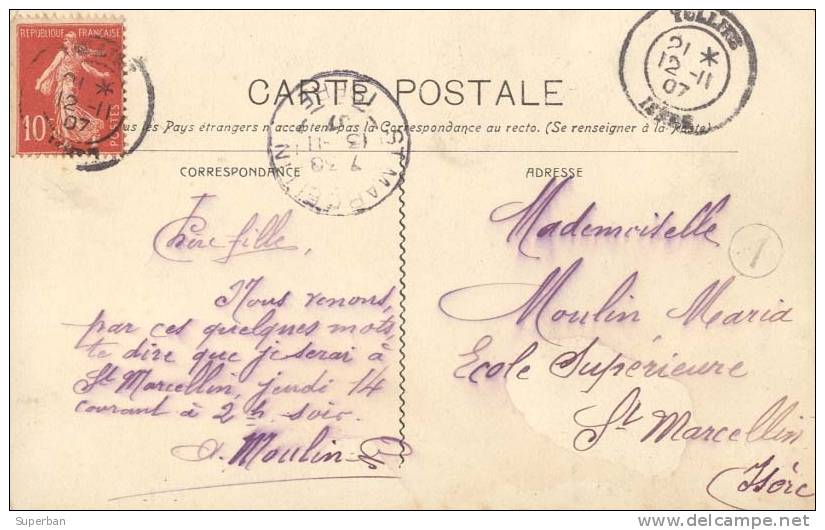 REPUBLIQUE FRANÇAISE
10
POSTES
21 *
12 -11
07
TULLINS
21 *
12 -11
07
ISERE
CARTE POSTALE
Tous les Pays étrangers n'acceptent pas la Correspondance au recto. (Se renseigner à la Poste)
ST MARCELLIN
13 -11
7 30
CORRESPONDANCE
ADRESSE
Chère fille,
Nous venons,
par ces quelques mots,
te dire que je serai à
St Marcellin, jeudi 14
courant à 2 h. soir.
A. Moulin
Mademoiselle
Moulin Maria
Ecole Supérieure
St Marcellin
Isère
1
© Superban
delcampe.net